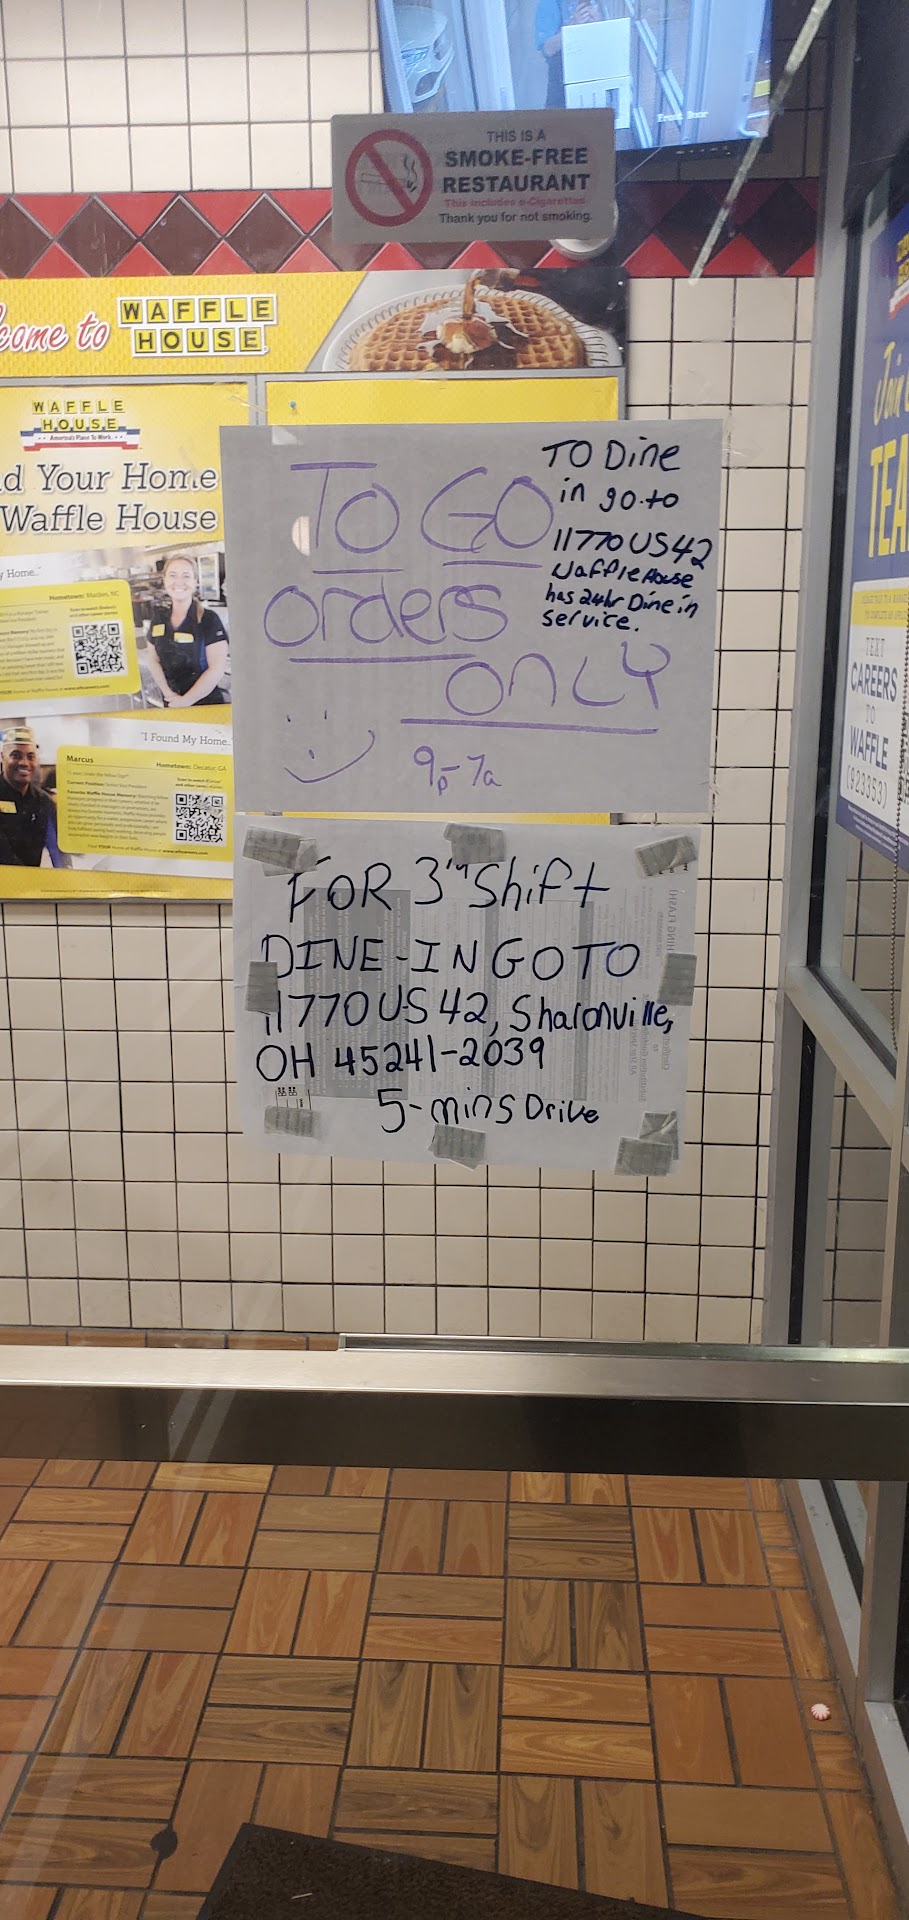 Front Door
THIS IS A
SMOKE-FREE
RESTAURANT
This includes e-Cigarettes
Thank you for not smoking.
come to WAFFLE
HOUSE
WAFFLE
HOUSE
America's Place To Work
d Your Home
Waffle House
y Home."
Hometown: Maiden, NC
"I Found My Home.
Marcus
Hometown: Decatur, GA
TO GO
orders
ONLY
9p-7a
TO Dine
in go to
11770 US 42
Waffle House
has 24hr Dine in
service.
FOR 3rd Shift
DINE-IN GO TO
11770 US 42, Sharonville,
OH 45241-2039
5-mins Drive
Join
TEA
TEXT
CAREERS
TO
WAFFLE
(923353)